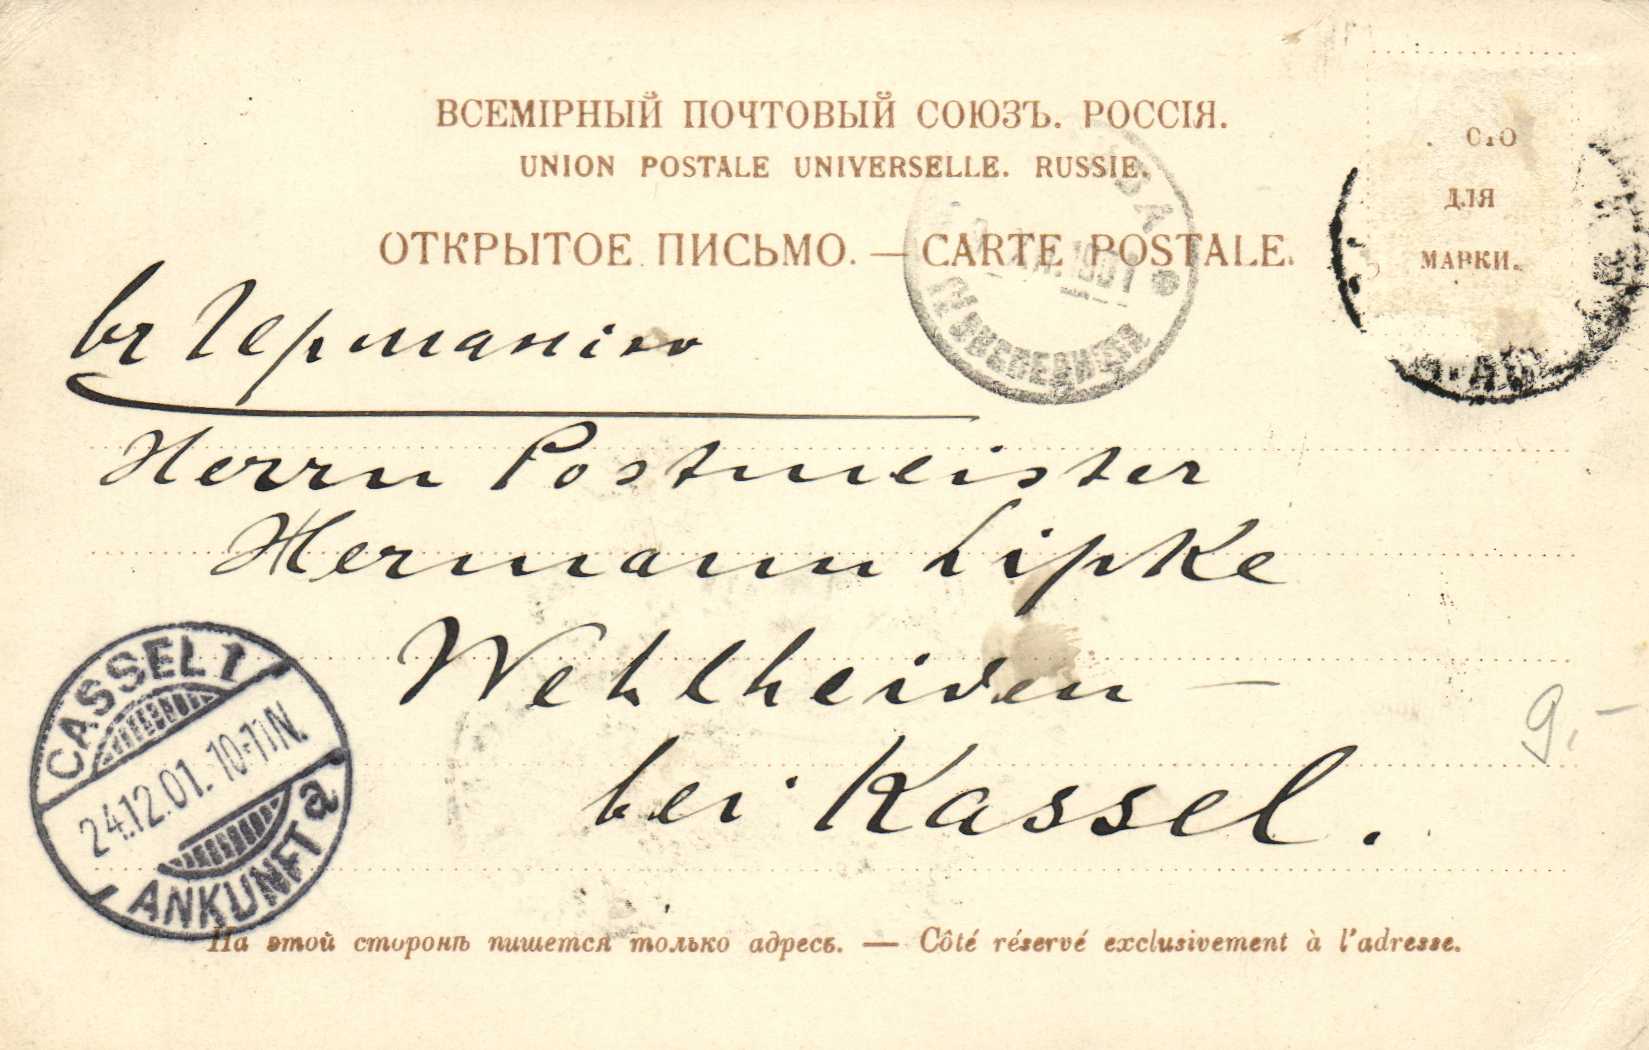 ВСЕМІРНЫЙ ПОЧТОВЫЙ СОЮЗЪ. РОССІЯ.
UNION POSTALE UNIVERSELLE. RUSSIE.
ОТКРЫТОЕ ПИСЬМО. — CARTE POSTALE.
ДЛЯ
МАРКИ.
1901
въ Германію
Herrn Postmeister
Hermann Lipke
Wehlheiden —
bei Kassel.
9,–
CASSEL 1
24.12.01. 10-11N.
ANKUNFT a
На этой сторонѣ пишется только адресъ. — Côté réservé exclusivement à l'adresse.